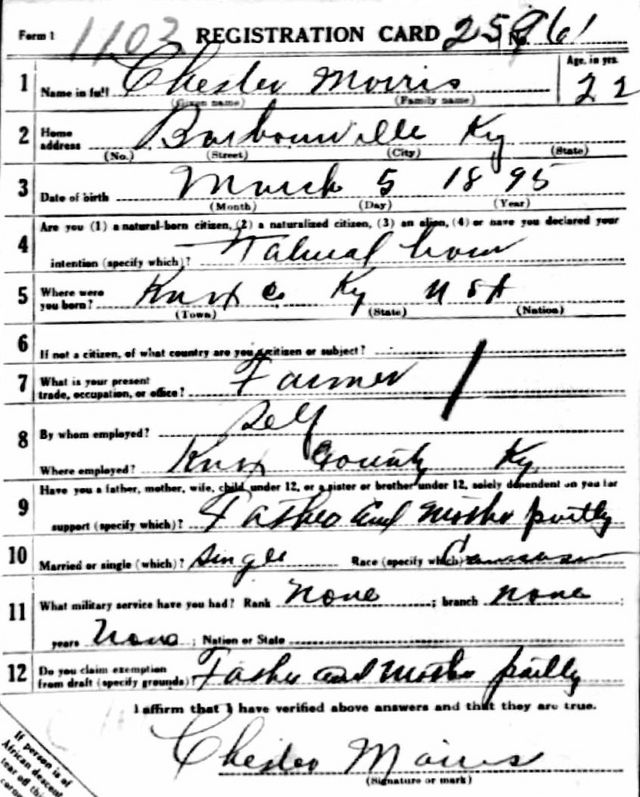 Form 1 1103 REGISTRATION CARD
1 Name in full Chester Morris Age, in yrs. 22
(Given name) (Family name)
2 Home address Barbourville Ky
(No.) (Street) (City) (State)
3 Date of birth March 5 1895
(Month) (Day) (Year)
4 Are you (1) a natural-born citizen, (2) a naturalized citizen, (3) an alien, (4) or have you declared your
intention (specify which)? Natural born
5 Where were you born? Knox Co Ky U S A
(Town) (State) (Nation)
6 If not a citizen, of what country are you a citizen or subject?
7 What is your present trade, occupation, or office? Farmer
8 By whom employed? Self
Where employed? Knox County Ky
9 Have you a father, mother, wife, child under 12, or a sister or brother under 12, solely dependent on you for
support (specify which)? Father and Mother partly
10 Married or single (which)? Single Race (specify which) Caucasian
11 What military service have you had? Rank None ; branch None ;
years None ; Nation or State
12 Do you claim exemption from draft (specify grounds)? Father and Mother partly
I affirm that I have verified above answers and that they are true.
Chester Morris
(Signature or mark)
If person is of
African descent
tear off this
corner